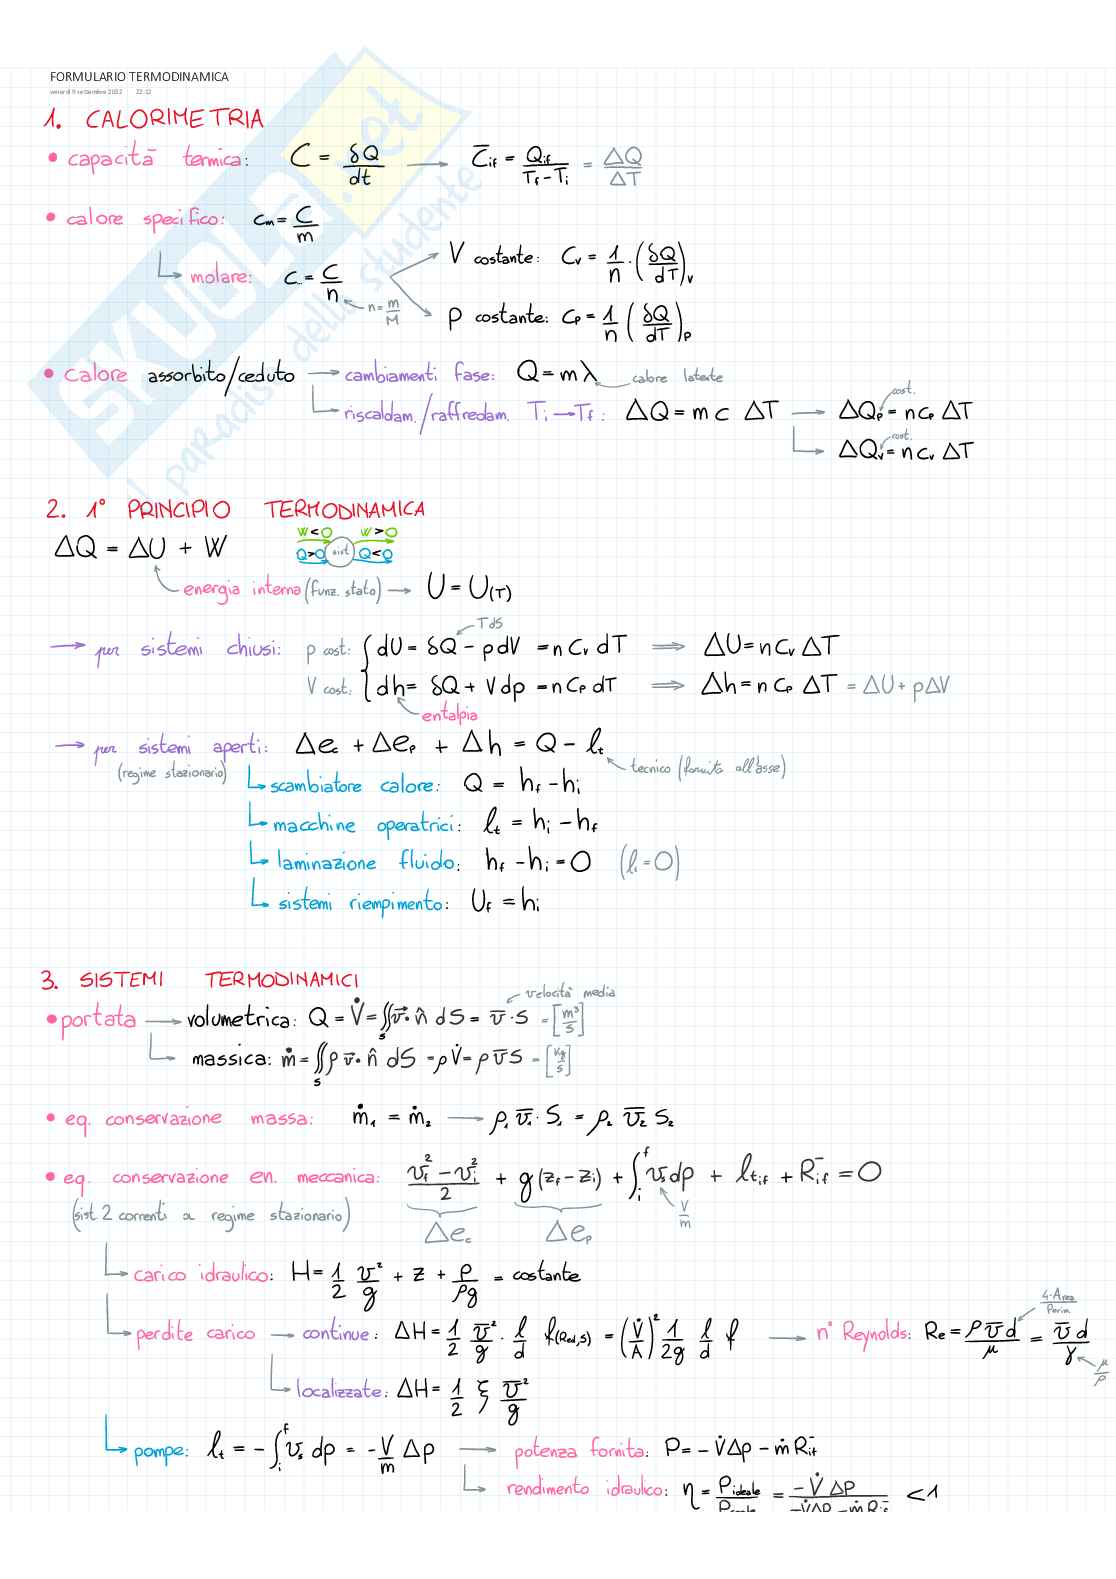 FORMULARIO TERMODINAMICA
venerdì 9 settembre 2022 22:12
1. CALORIMETRIA
• capacità termica: C = δQ/dt → C̄if = Qif/(Tf - Ti) = ΔQ/ΔT
• calore specifico: cm = C/m
↳ molare: c = C/n
n = m/M
V costante: Cv = 1/n · (δQ/dT)v
p costante: Cp = 1/n (δQ/dT)p
• calore assorbito/ceduto → cambiamenti fase: Q = mλ calore latente
↳ riscaldam./raffredam. Ti → Tf: ΔQ = m c ΔT → ΔQp = n cp ΔT cost.
↳ ΔQv = n cv ΔT cost.
2. 1° PRINCIPIO TERMODINAMICA
ΔQ = ΔU + W
W<0 W>0
Q>0 sist Q<0
energia interna (funz. stato) → U = U(T)
→ per sistemi chiusi: p cost: dU = δQ - pdV = n Cv dT ⟹ ΔU = n Cv ΔT
TdS
V cost: dh = δQ + Vdp = n Cp dT ⟹ Δh = n Cp ΔT = ΔU + pΔV
entalpia
→ per sistemi aperti: Δec + Δep + Δh = Q - lt
(regime stazionario)
tecnico (fornito all'asse)
↳ scambiatore calore: Q = hf - hi
↳ macchine operatrici: lt = hi - hf
↳ laminazione fluido: hf - hi = 0 (lt = 0)
↳ sistemi riempimento: Uf = hi
3. SISTEMI TERMODINAMICI
• portata → volumetrica: Q = V̇ = ∬s v̄ · n̂ dS = v̄ · S = [m³/s]
velocità media
↳ massica: ṁ = ∬s ρ v̄ · n̂ dS = ρV̇ = ρ v̄ S = [kg/s]
• eq. conservazione massa: ṁ1 = ṁ2 → ρ1 v̄1 · S1 = ρ2 v̄2 S2
• eq. conservazione en. meccanica: (vf² - vi²)/2 + g(zf - zi) + ∫if vs dp + lt if + R̄if = 0
(sist 2 correnti a regime stazionario)
Δec Δep V/m
↳ carico idraulico: H = 1/2 v²/g + z + p/ρg = costante
↳ perdite carico → continue: ΔH = 1/2 v̄²/g · l/d f(Red,s) = (V̇/A)² 1/2g l/d f → n° Reynolds: Re = ρ v̄ d/μ = v̄ d/γ
4·Area/Perim
μ/ρ
↳ localizzate: ΔH = 1/2 ξ v̄²/g
↳ pompe: lt = -∫if vs dp = -V/m Δp → potenza fornita: P = -V̇Δp - ṁ R̄if
↳ rendimento idraulico: η = Pideale/Preale = -V̇ ΔP/(-V̇ΔP - ṁ R̄if) < 1
SKUOLA.net
il paradiso dello studente